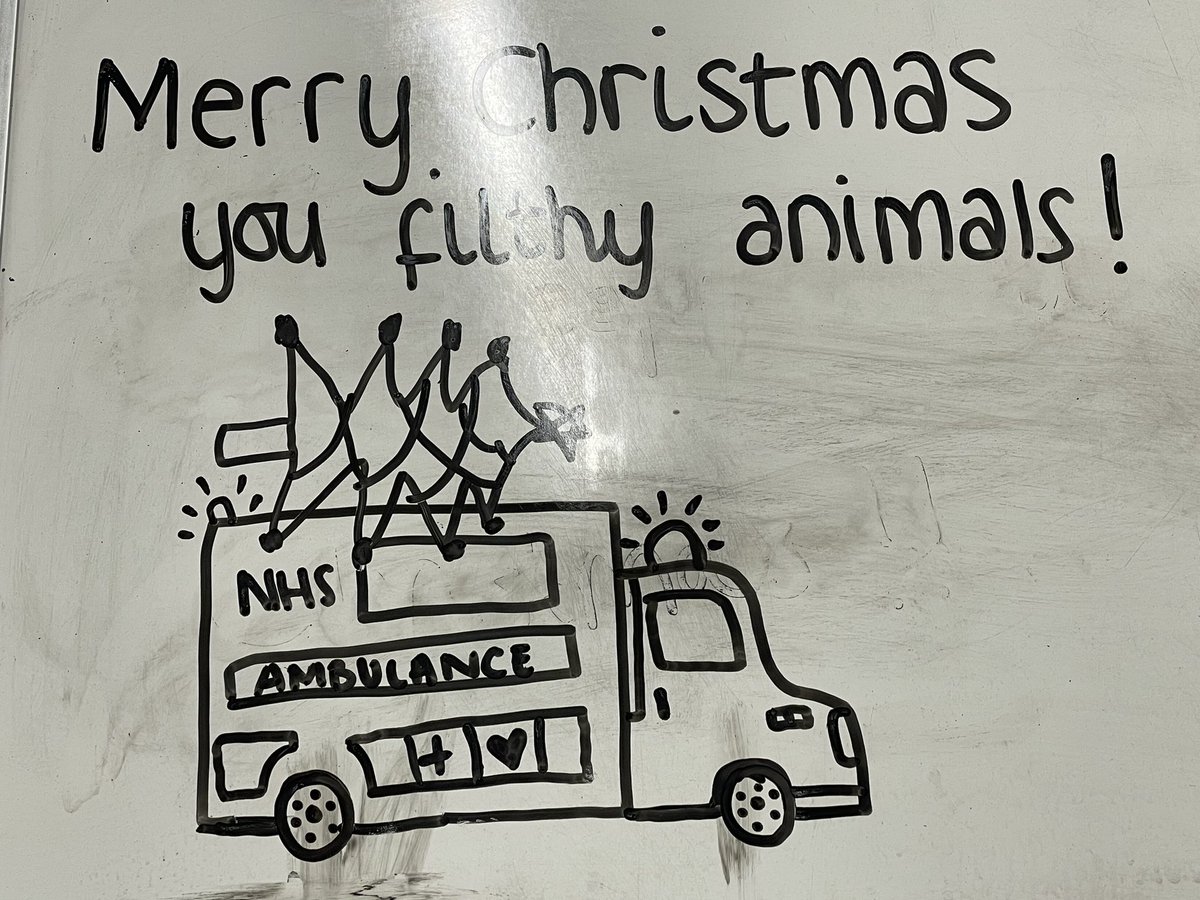 Merry Christmas
you filthy animals!
NHS
AMBULANCE